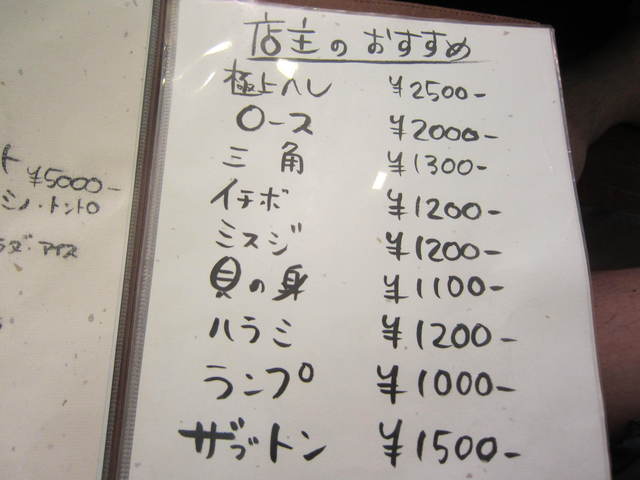 ト ¥5000-
ミノ・トントロ
ダ・アイス
店主のおすすめ
極上ヘレ ¥2500-
ロース ¥2000-
三角 ¥1300-
イチボ ¥1200-
ミスジ ¥1200-
貝の身 ¥1100-
ハラミ ¥1200-
ランプ ¥1000-
ザブトン ¥1500-